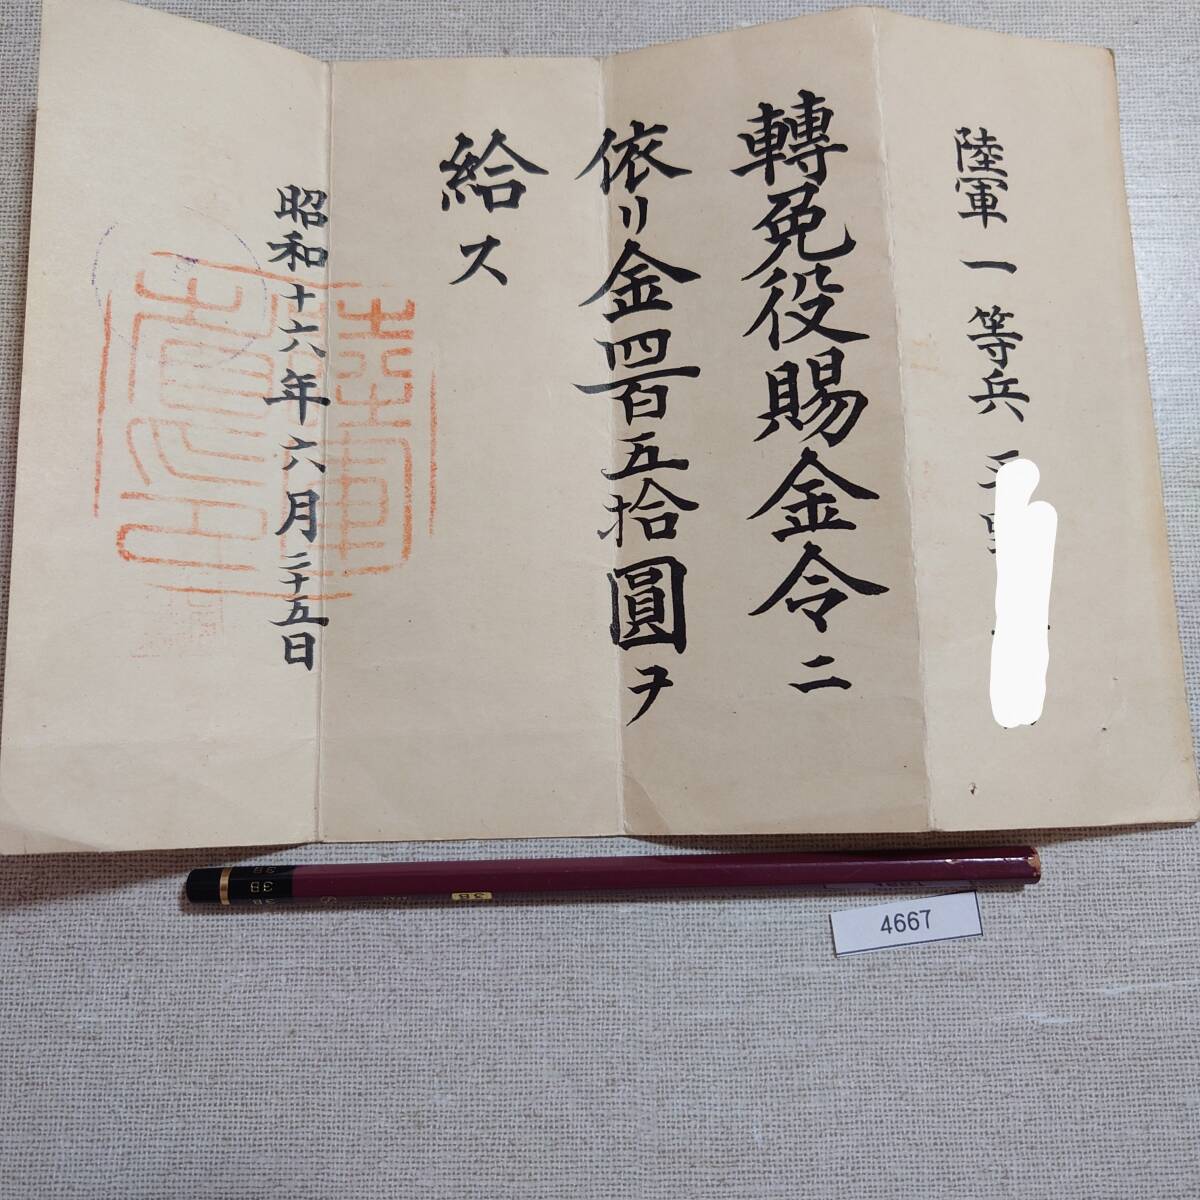 陸軍一等兵
轉免役賜金令ニ
依リ金四百五拾圓ヲ
給ス
昭和十六年六月二十五日
3B
3B
4667